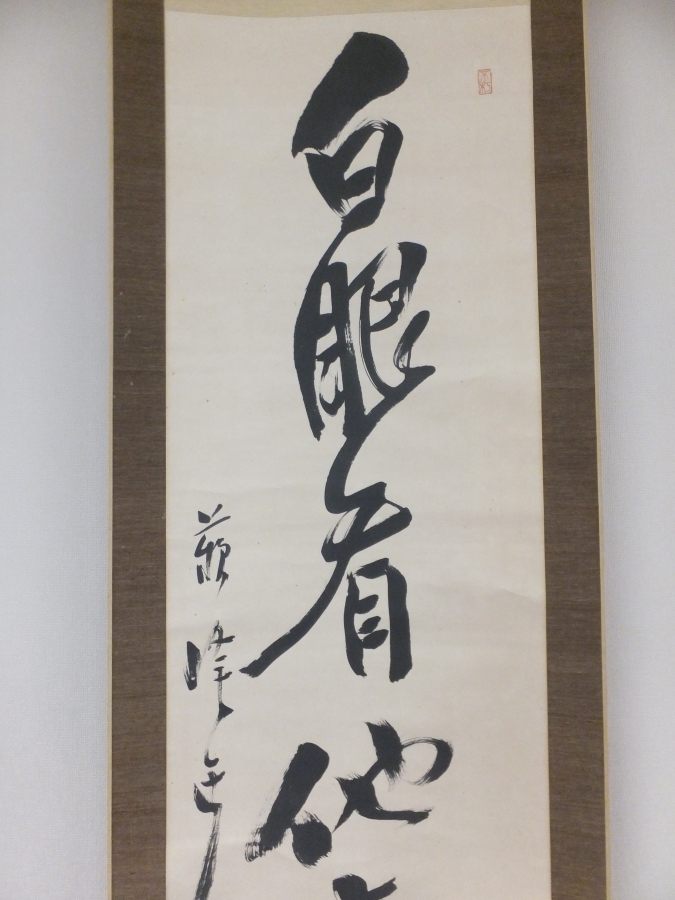 白眼看他
蘇峰